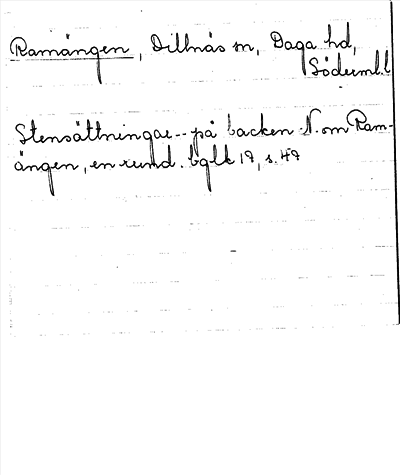 Ramängen, Dillnäs sn, Daga hd,
Söderml. l
Stensättningar -- på backen N. om Ram-
ängen, en rund. bglk 19, s. 49